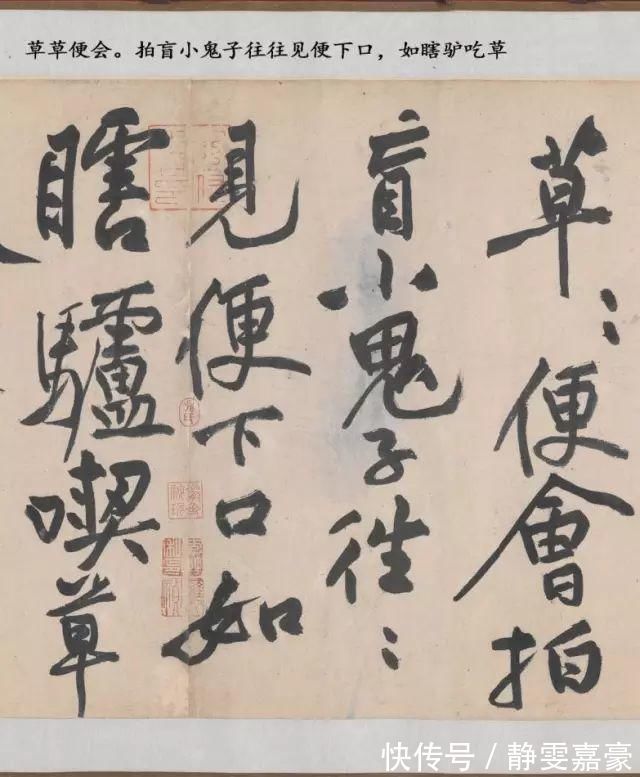 草草便会。拍盲小鬼子往往见便下口，如瞎驴吃草
草〻便會拍
盲小鬼子往〻
見便下口如
瞎驢喫草
快传号／静雯嘉豪